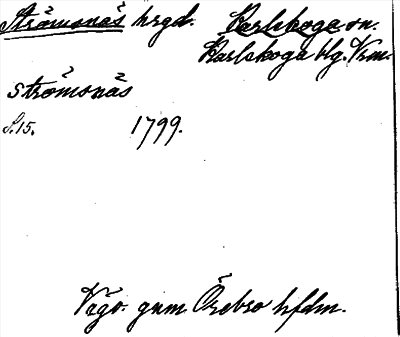 Strömsnäs hrgd. Karlskoga sn.
Karlskoga blg. Vrm.
strömsnäs
S. 15. 1799.
Vägv. gnm Örebro hfdm.